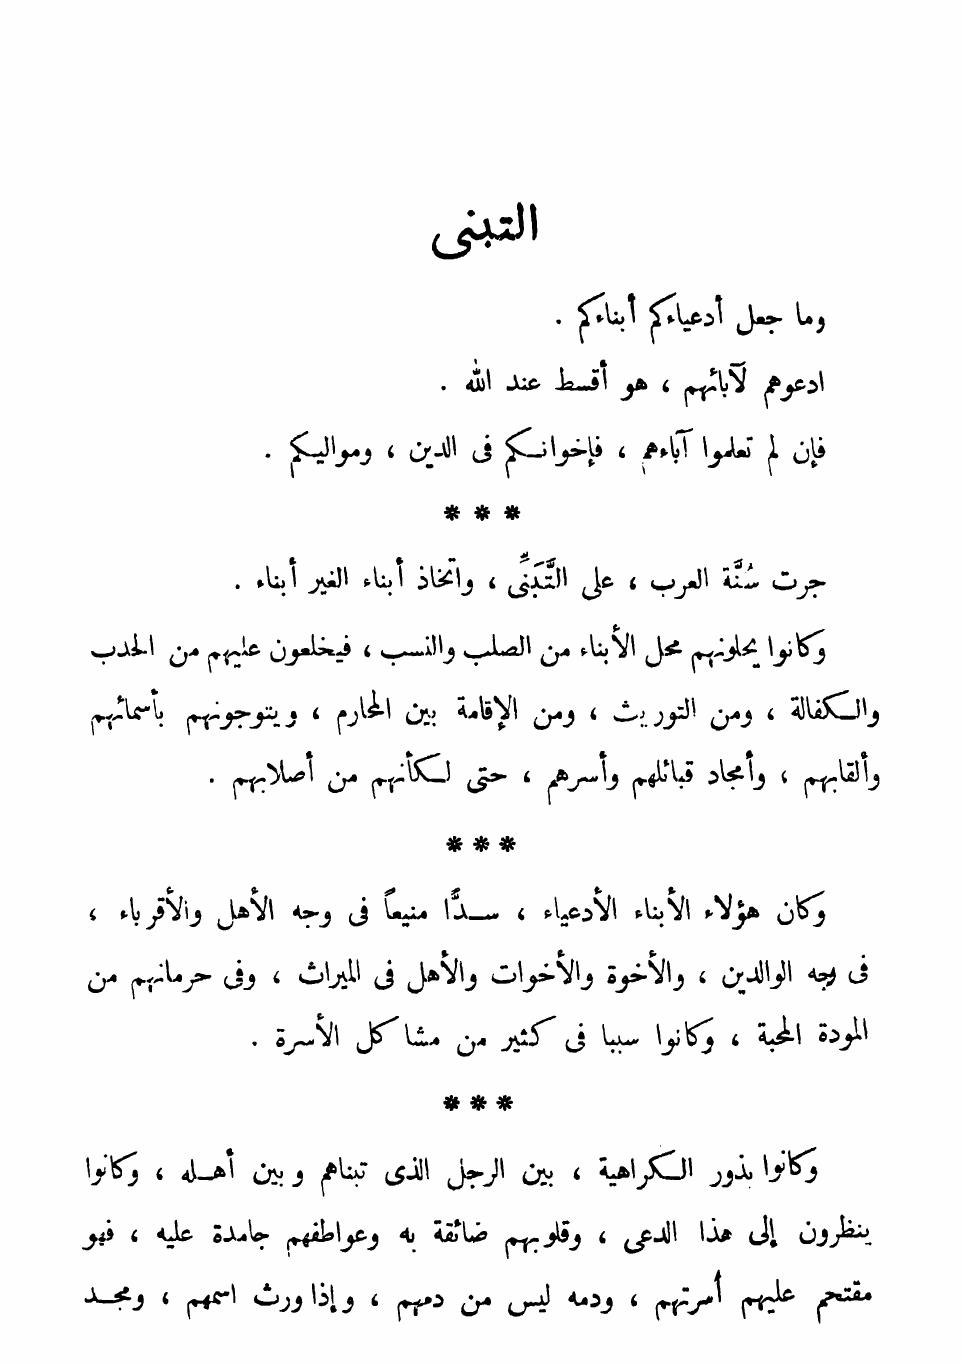 التبنى
وما جعل أدعياءكم أبناءكم .
ادعوهم لآبائهم ، هو أقسط عند الله .
فإن لم تعلموا آباءهم ، فإخوانـكم فى الدين ، ومواليكم .
* * *
جرت سُنَّة العرب ، على التَّبَنِّى ، واتخاذ أبناء الغير أبناء .
وكانوا يحلونهم محل الأبناء من الصلب والنسب ، فيخلعون عليهم من الحدب
والـكفالة ، ومن التوريث ، ومن الإقامة بين المحارم ، ويتوجونهم بأسمائهم
وألقابهم ، وأمجاد قبائلهم وأسرهم ، حتى لـكأنهم من أصلابهم .
* * *
وكان هؤلاء الأبناء الأدعياء ، سـدًّا منيعاً فى وجه الأهل والأقرباء ،
فى وجه الوالدين ، والأخوة والأخوات والأهل فى الميراث ، وفى حرمانهم من
المودة المحبة ، وكانوا سببا فى كثير من مشاكل الأسرة .
* * *
وكانوا بذور الـكراهية ، بين الرجل الذى تبناهم وبين أهـله ، وكانوا
ينظرون إلى هذا الدعى ، وقلوبهم ضائقة به وعواطفهم جامدة عليه ، فهو
مقتحم عليهم أسرتهم ، ودمه ليس من دمهم ، وإذا ورث اسمهم ، ومجـد